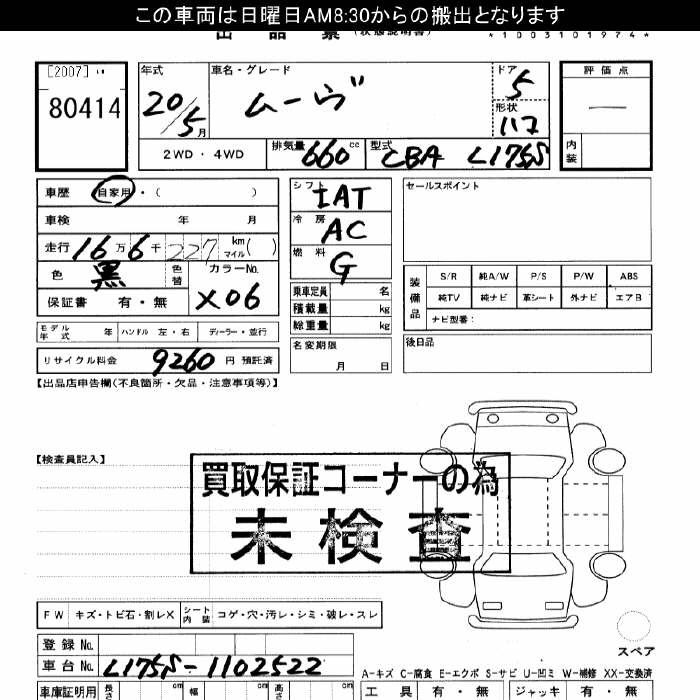 この車両は日曜日AM8:30からの搬出となります
出品票 (状態説明書) *1003101974*
[2007]
80414
年式 20/5月
車名・グレード ムーヴ
ドア 5
形状
評価点 —
内装
2WD・4WD 排気量 660cc 型式 CBA L175S
車歴 自家用・( )
車検 年 月
走行 16万6千227km マイル( )
色 黒 色替 カラーNo. X06
保証書 有・無
モデル年式 年 ハンドル 左・右 ディーラー・並行
リサイクル料金 9260円 預託済
シフト IAT
冷房 AC
燃料 G
乗車定員 名
積載量 kg
総重量 kg
名変期限 月 日
セールスポイント
装備品 S/R 純A/W P/S P/W ABS
純TV 純ナビ 革シート 外ナビ エアB
ナビ型番:
後日品
【出品店申告欄(不良箇所・欠品・注意事項等)】
【検査員記入】
買取保証コーナーの為
未検査
FW キズ・トビ石・割レX シート内装 コゲ・穴・汚レ・シミ・破レ・スレ
スペア
登録No.
車台No. L175S-1102522
A-キズ C-腐食 E-エクボ S-サビ U-凹ミ W-補修 XX-交換済
車庫証明用 長さ cm 幅 cm 高さ cm 工具 有・無 ジャッキ 有・無